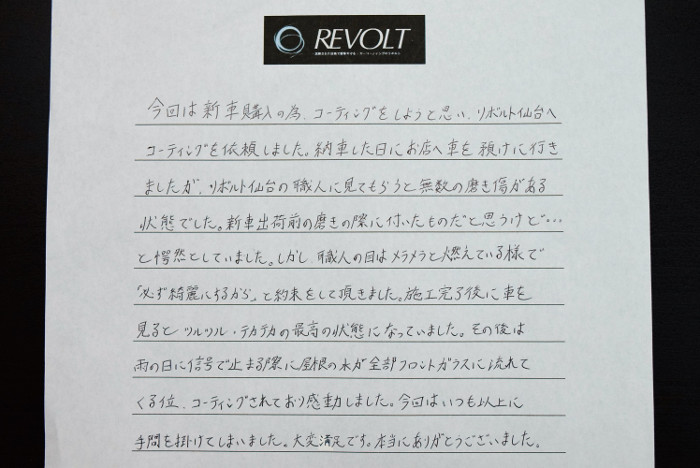 REVOLT
今回は新車購入の為、コーティングをしようと思い、リボルト仙台へ
コーティングを依頼しました。納車した日にお店へ車を預けに行き
ましたが、リボルト仙台の職人に見てもらうと無数の磨き傷がある
状態でした。新車出荷前の磨きの際に付いたものだと思うけど…
と愕然としていました。しかし、職人の目はメラメラと燃えている様で
「必ず綺麗にするから」と約束をして頂きました。施工完了後に車を
見るとツルツル・テカテカの最高の状態になっていました。その後は
雨の日に信号で止まる際に屋根の水が全部フロントガラスに流れて
くる位、コーティングされており感動しました。今回はいつも以上に
手間を掛けてしまいました。大変満足です。本当にありがとうございました。